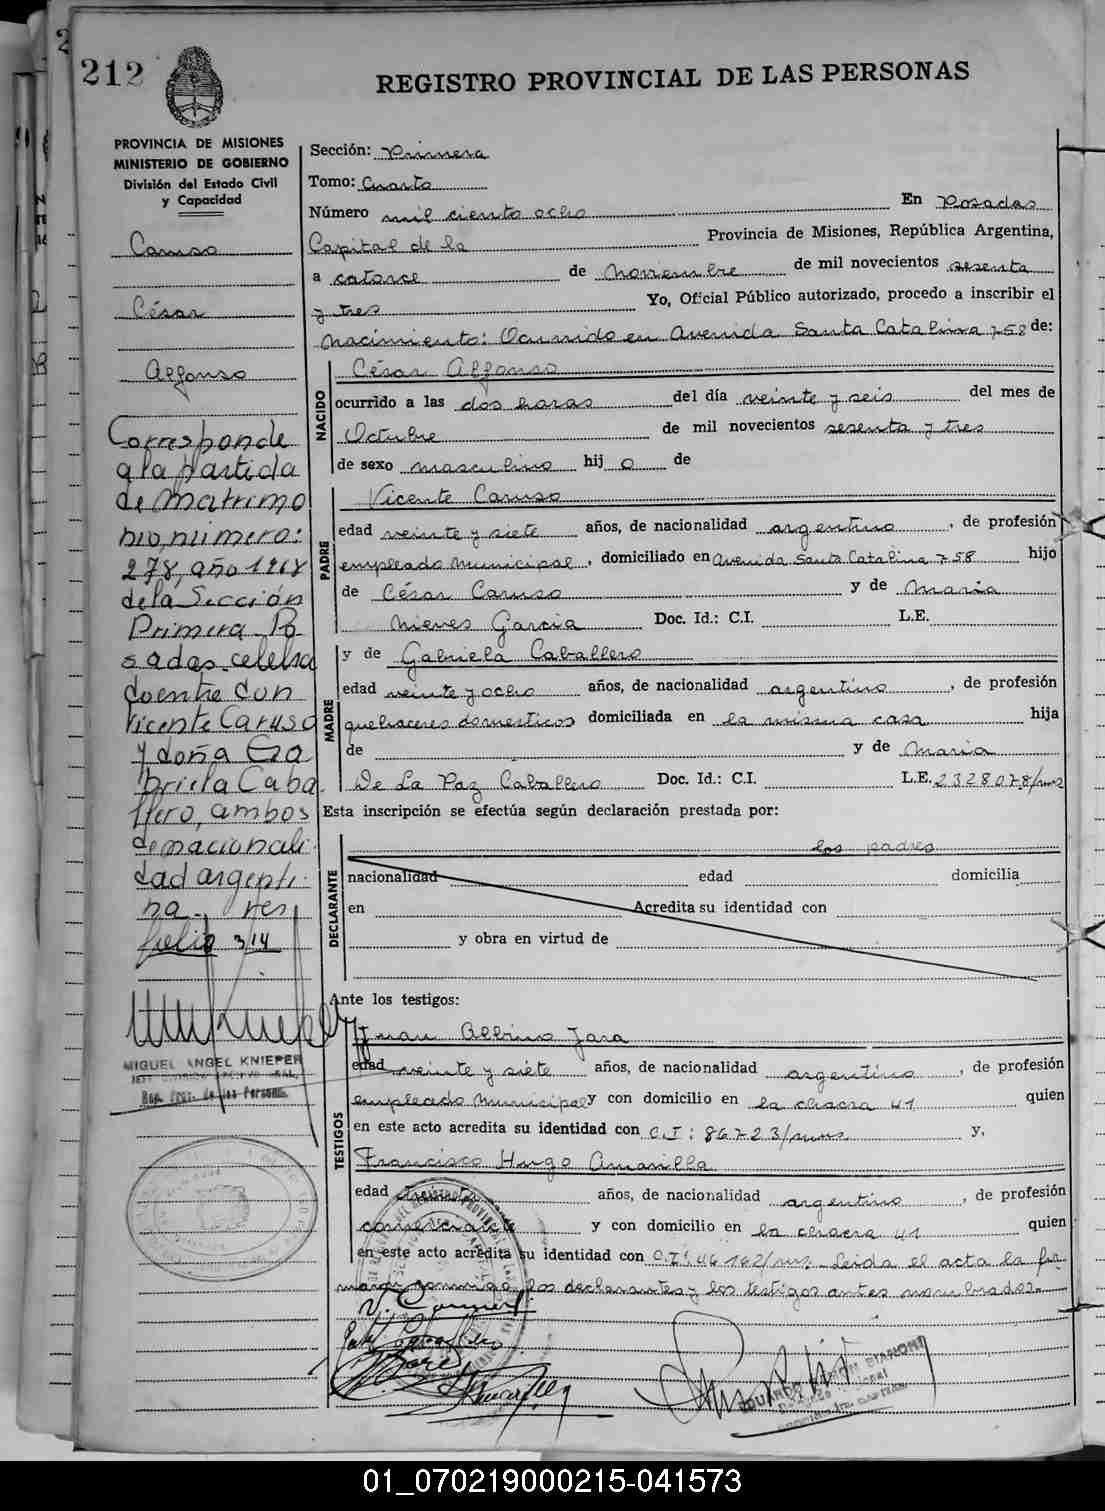 212
REGISTRO PROVINCIAL DE LAS PERSONAS
PROVINCIA DE MISIONES
MINISTERIO DE GOBIERNO
División del Estado Civil
y Capacidad
Caruso
César
Alfonso
Corresponde
a la partida
de matrimo
nio, número:
278, año 1968
de la Sección
Primera Po
sadas, celebra
do entre don
Vicente Caruso
y doña Ga
briela Caba
llero, ambos
de nacionali
dad argenti
na.
Julio 3/14
MIGUEL ANGEL KNIEPER
Sección: Primera
Tomo: Cuarto
Número mil ciento ocho En Posadas
Capital de la Provincia de Misiones, República Argentina,
a catorce de noviembre de mil novecientos sesenta
y tres Yo, Oficial Público autorizado, procedo a inscribir el
nacimiento: Ocurrido en Avenida Santa Catalina 758 de:
NACIDO
César Alfonso
ocurrido a las dos horas del día veinte y seis del mes de
Octubre de mil novecientos sesenta y tres
de sexo masculino hij o de
PADRE
Vicente Caruso
edad veinte y siete años, de nacionalidad argentino, de profesión
empleado municipal, domiciliado en Avenida Santa Catalina 758 hijo
de César Caruso y de María
Nieves García Doc. Id.: C.I. L.E.
MADRE
y de Gabriela Caballero
edad veinte y ocho años, de nacionalidad argentino, de profesión
quehaceres domesticos domiciliada en la misma casa hija
de y de María
De La Paz Caballero Doc. Id.: C.I. L.E. 2328078/
Esta inscripción se efectúa según declaración prestada por:
DECLARANTE
los padres
nacionalidad edad domicilia
en Acredita su identidad con
y obra en virtud de
Ante los testigos:
TESTIGOS
Juan Albino Jara
edad veinte y siete años, de nacionalidad argentino, de profesión
empleado municipal y con domicilio en la chacra 41 quien
en este acto acredita su identidad con C.I: 86723/ y,
Francisco Hugo Amarilla
edad treinta años, de nacionalidad argentino, de profesión
comerciante y con domicilio en la chacra 41 quien
en este acto acredita su identidad con C.I: 46162/ Leida el acta la fir
man conmigo los declarantes y los testigos antes nombrados.
01_070219000215-041573